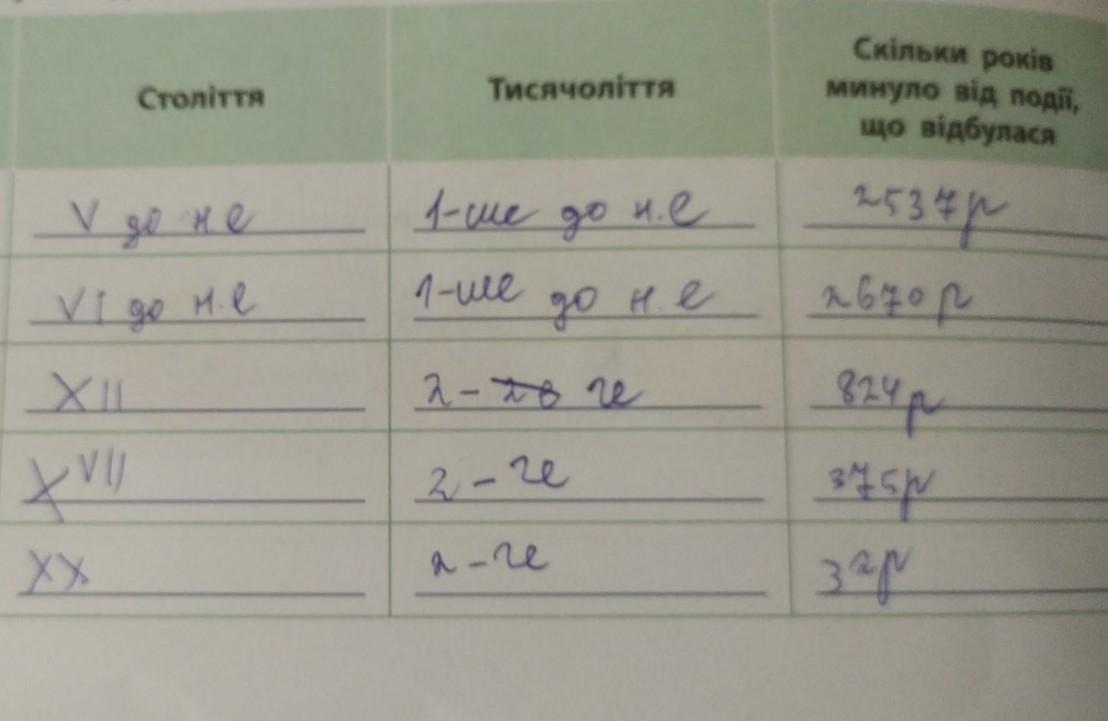 Століття
Тисячоліття
Скільки років
минуло від події,
що відбулася
V до н е
1-ше до н.е
2537р
VI до н.е
1-ше до н.е
2670р
XII
2-ге
824р
XVII
2-ге
375р
XX
2-ге
32р